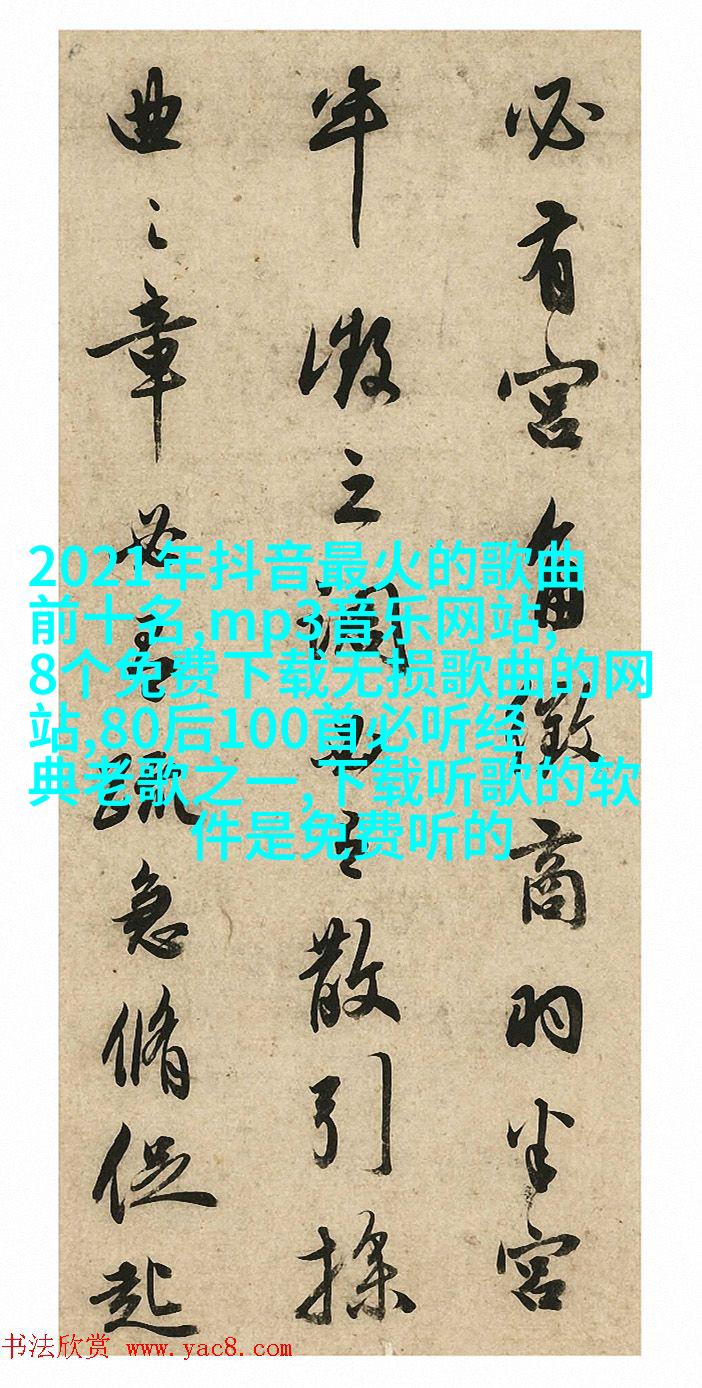 必有宫徵商羽半宫
半徵之散引操
曲之章必急脩促起
2021年抖音最火的歌曲
前十名,mp3音乐网站,
8个免费下载无损歌曲的网
站,80后100首必听经
典老歌之一,下载听歌的软
件是免费听的
书法欣赏 www.yac8.com